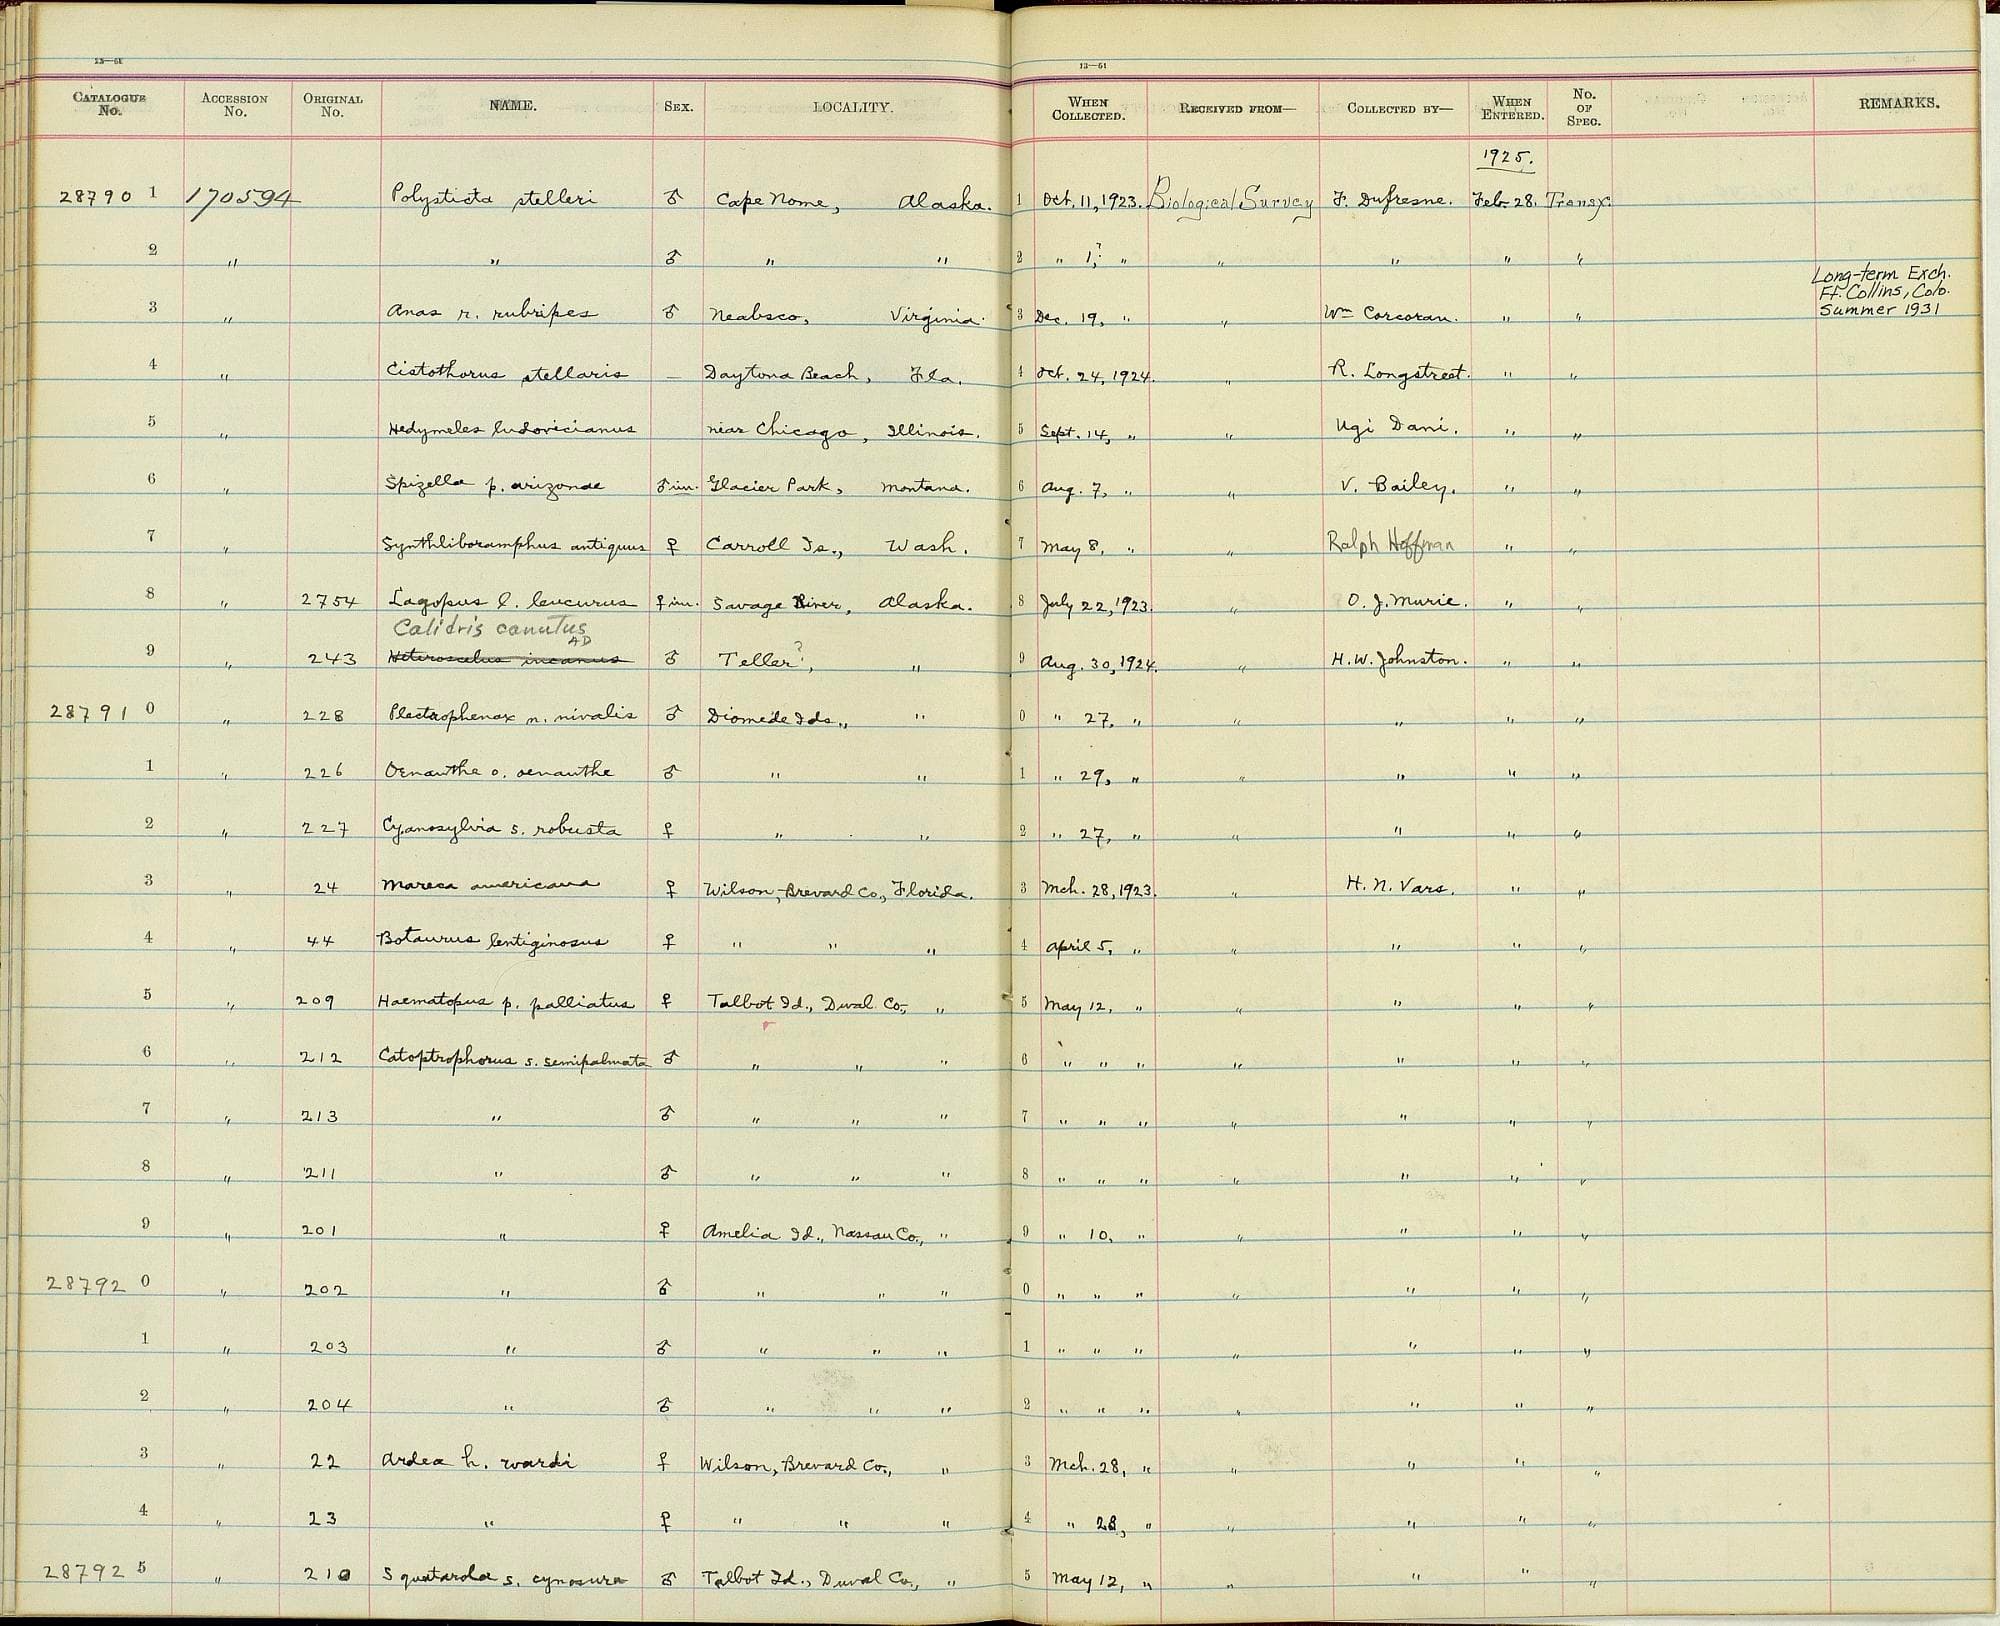 13—61
13—61
CATALOGUE No. ACCESSION No. ORIGINAL No. NAME. SEX. LOCALITY. WHEN COLLECTED. RECEIVED FROM— COLLECTED BY— WHEN ENTERED. No. OF SPEC. REMARKS.
1925.
28790 1 170594 Polysticta stelleri ♂ Cape Nome, Alaska. 1 Oct. 11, 1923. Biological Survey F. Dufresne. Feb. 28. Transf.
2 " " ♂ " " 2 " 1,? " " " " "
Long-term Exch.
Ft. Collins, Colo.
3 " Anas r. rubripes ♂ Neabsco, Virginia. 3 Dec. 19, " " Wm Corcoran. " " Summer 1931
4 " Cistothorus stellaris — Daytona Beach, Fla. 4 Oct. 24, 1924. " R. Longstreet. " "
5 " Hedymeles ludovicianus near Chicago, Illinois. 5 Sept. 14, " " Ugi Dani. " "
6 " Spizella p. arizonae ♂ im. Glacier Park, Montana. 6 Aug. 7, " " V. Bailey. " "
7 " Synthliboramphus antiquus ♀ Carroll Is., Wash. 7 May 8, " " Ralph Hoffman " "
8 " 2754 Lagopus l. leucurus ♀ im. Savage River, Alaska. 8 July 22, 1923. " O. J. Murie. " "
Calidris canutus AD
9 " 243 Heteroscelus incanus ♂ Teller?, " 9 Aug. 30, 1924. " H. W. Johnston. " "
28791 0 " 228 Plectrophenax n. nivalis ♂ Diomede Ids., " 0 " 27, " " " " "
1 " 226 Oenanthe o. oenanthe ♂ " " 1 " 29, " " " " "
2 " 227 Cyanosylvia s. robusta ♀ " " 2 " 27, " " " " "
3 " 24 Mareca americana ♀ Wilson, Brevard Co., Florida. 3 Mch. 28, 1923. " H. N. Vars. " "
4 " 44 Botaurus lentiginosus ♀ " " " 4 April 5, " " " " "
5 " 209 Haematopus p. palliatus ♀ Talbot Id., Duval Co., " 5 May 12, " " " " "
6 " 212 Catoptrophorus s. semipalmata ♂ " " " 6 " " " " " " "
7 " 213 " ♂ " " " 7 " " " " " " "
8 " 211 " ♂ " " " 8 " " " " " " "
9 " 201 " ♀ Amelia Id., Nassau Co., " 9 " 10, " " " " "
28792 0 " 202 " ♂ " " " 0 " " " " " " "
1 " 203 " ♂ " " " 1 " " " " " " "
2 " 204 " ♂ " " " 2 " " " " " " "
3 " 22 Ardea h. wardi ♀ Wilson, Brevard Co., " 3 Mch. 28, " " " " "
4 " 23 " ♀ " " " 4 " 28, " " " " "
28792 5 " 210 Squatarola s. cynosurae ♂ Talbot Id., Duval Co., " 5 May 12, " " " " "